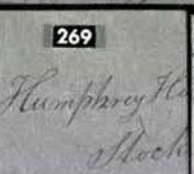 269
Humphrey H
Stock